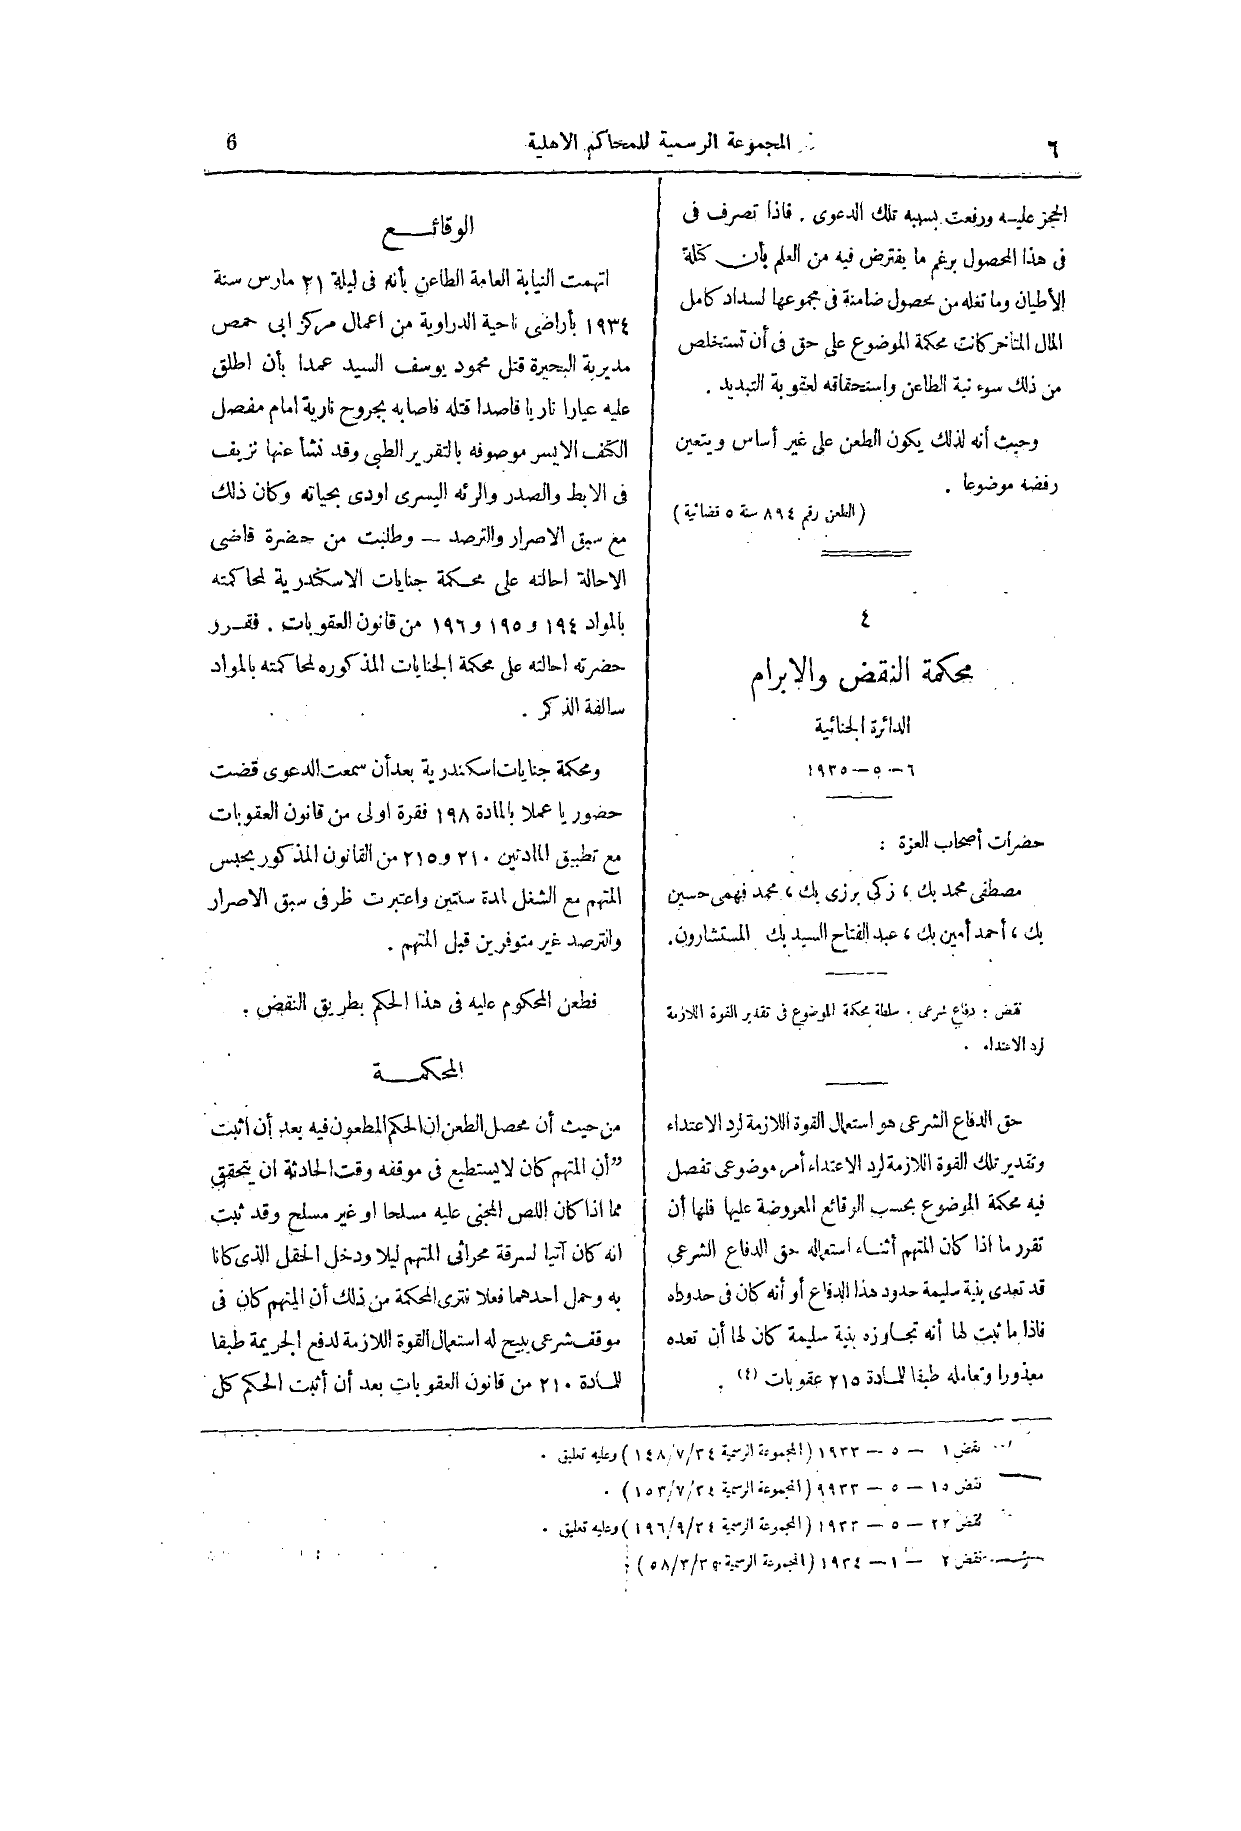 ٦
المجموعة الرسمية للمحاكم الاهلية
6
الحجز عليه ورفعت بسببه تلك الدعوى . فاذا تصرف فى
فى هذا المحصول برغم ما يفترض فيه من العلم بأن كتلة
الأطيان وما تغله من محصول ضامنة فى مجموعها لسداد كامل
المال المتأخر كانت محكمة الموضوع على حق فى أن تستخلص
من ذلك سوء نية الطاعن واستحقاقه لعقوبة التبديد .
وحيث أنه لذلك يكون الطعن على غير أساس ويتعين
رفضه موضوعا .
(الطعن رقم ٨٩٤ سنة ٥ قضائية)
٤
محكمة النقض والابرام
الدائرة الجنائية
٦-٥-١٩٣٥
حضرات أصحاب العزة :
مصطفى محمد بك ، زكى برزى بك ، محمد فهمى حسين
بك ، أحمد أمين بك ، عبد الفتاح السيد بك المستشارون.
نقض : دفاع شرعى . سلطة محكمة الموضوع فى تقدير القوة اللازمة
لرد الاعتداء .
حق الدفاع الشرعى هو استعمال القوة اللازمة لرد الاعتداء
وتقدير تلك القوة اللازمة لرد الاعتداء أمر موضوعى تفصل
فيه محكمة الموضوع بحسب الوقائع المعروضة عليها فلها أن
تقرر ما اذا كان المتهم أثناء استعماله حق الدفاع الشرعى
قد تعدى بنية سليمة حدود هذا الدفاع أو أنه كان فى حدوده
فاذا ما ثبت لها أنه تجاوزه بنية سليمة كان لها أن تعده
معذورا وتعامله طبقا للمادة ٢١٥ عقوبات (٤) .
الوقائع
اتهمت النيابة العامة الطاعن بأنه فى ليلة ٢١ مارس سنة
١٩٣٤ بأراضى ناحية الدراوية من اعمال مركز ابى حمص
مديرية البحيرة قتل محمود يوسف السيد عمدا بأن اطلق
عليه عيارا ناريا قاصدا قتله فاصابه بجروح نارية امام مفصل
الكتف الايسر موصوفه بالتقرير الطبى وقد نشأ عنها نزيف
فى الابط والصدر والرئه اليسرى اودى بحياته وكان ذلك
مع سبق الاصرار والترصد — وطلبت من حضرة قاضى
الاحالة احالته على محكمة جنايات الاسكندرية لمحاكمته
بالمواد ١٩٤ و ١٩٥ و ١٩٦ من قانون العقوبات . فقرر
حضرته احالته على محكمة الجنايات المذكوره لمحاكمته بالمواد
سالفة الذكر .
ومحكمة جنايات اسكندرية بعد أن سمعت الدعوى قضت
حضوريا عملا بالمادة ١٩٨ فقرة اولى من قانون العقوبات
مع تطبيق المادتين ٢١٠ و ٢١٥ من القانون المذكور بحبس
المتهم مع الشغل لمدة سنتين واعتبرت ظرفى سبق الاصرار
والترصد غير متوفرين قبل المتهم .
فطعن المحكوم عليه فى هذا الحكم بطريق النقض .
المحكمة
من حيث أن محصل الطعن ان الحكم المطعون فيه بعد أن اثبت
”أن المتهم كان لا يستطيع فى موقفه وقت الحادثة ان يتحقق
مما اذا كان اللص المجنى عليه مسلحا او غير مسلح وقد ثبت
انه كان آتيا لسرقة محراثى المتهم ليلا ودخل الحقل الذى كانا
به وحمل أحدهما فعلا فترى المحكمة من ذلك أن المتهم كان فى
موقف شرعى يبيح له استعمال القوة اللازمة لدفع الجريمة طبقا
للمادة ٢١٠ من قانون العقوبات بعد أن أثبت الحكم كل
نقض ١ — ٥ — ١٩٣٣ (المجموعة الرسمية ٣٤/٧/١٤٨) وعليه تعليق .
نقض ١٥ — ٥ — ٩٩٣٣ (المجموعة الرسمية ٣٤/٧/١٥٣) .
نقض ٢٢ — ٥ — ١٩٣٣ (المجموعة الرسمية ٣٤/٩/١٩٦) وعليه تعليق .
نقض ٢ — ١ — ١٩٣٤ (المجموعة الرسمية ٣٥/٣/٥٨) .